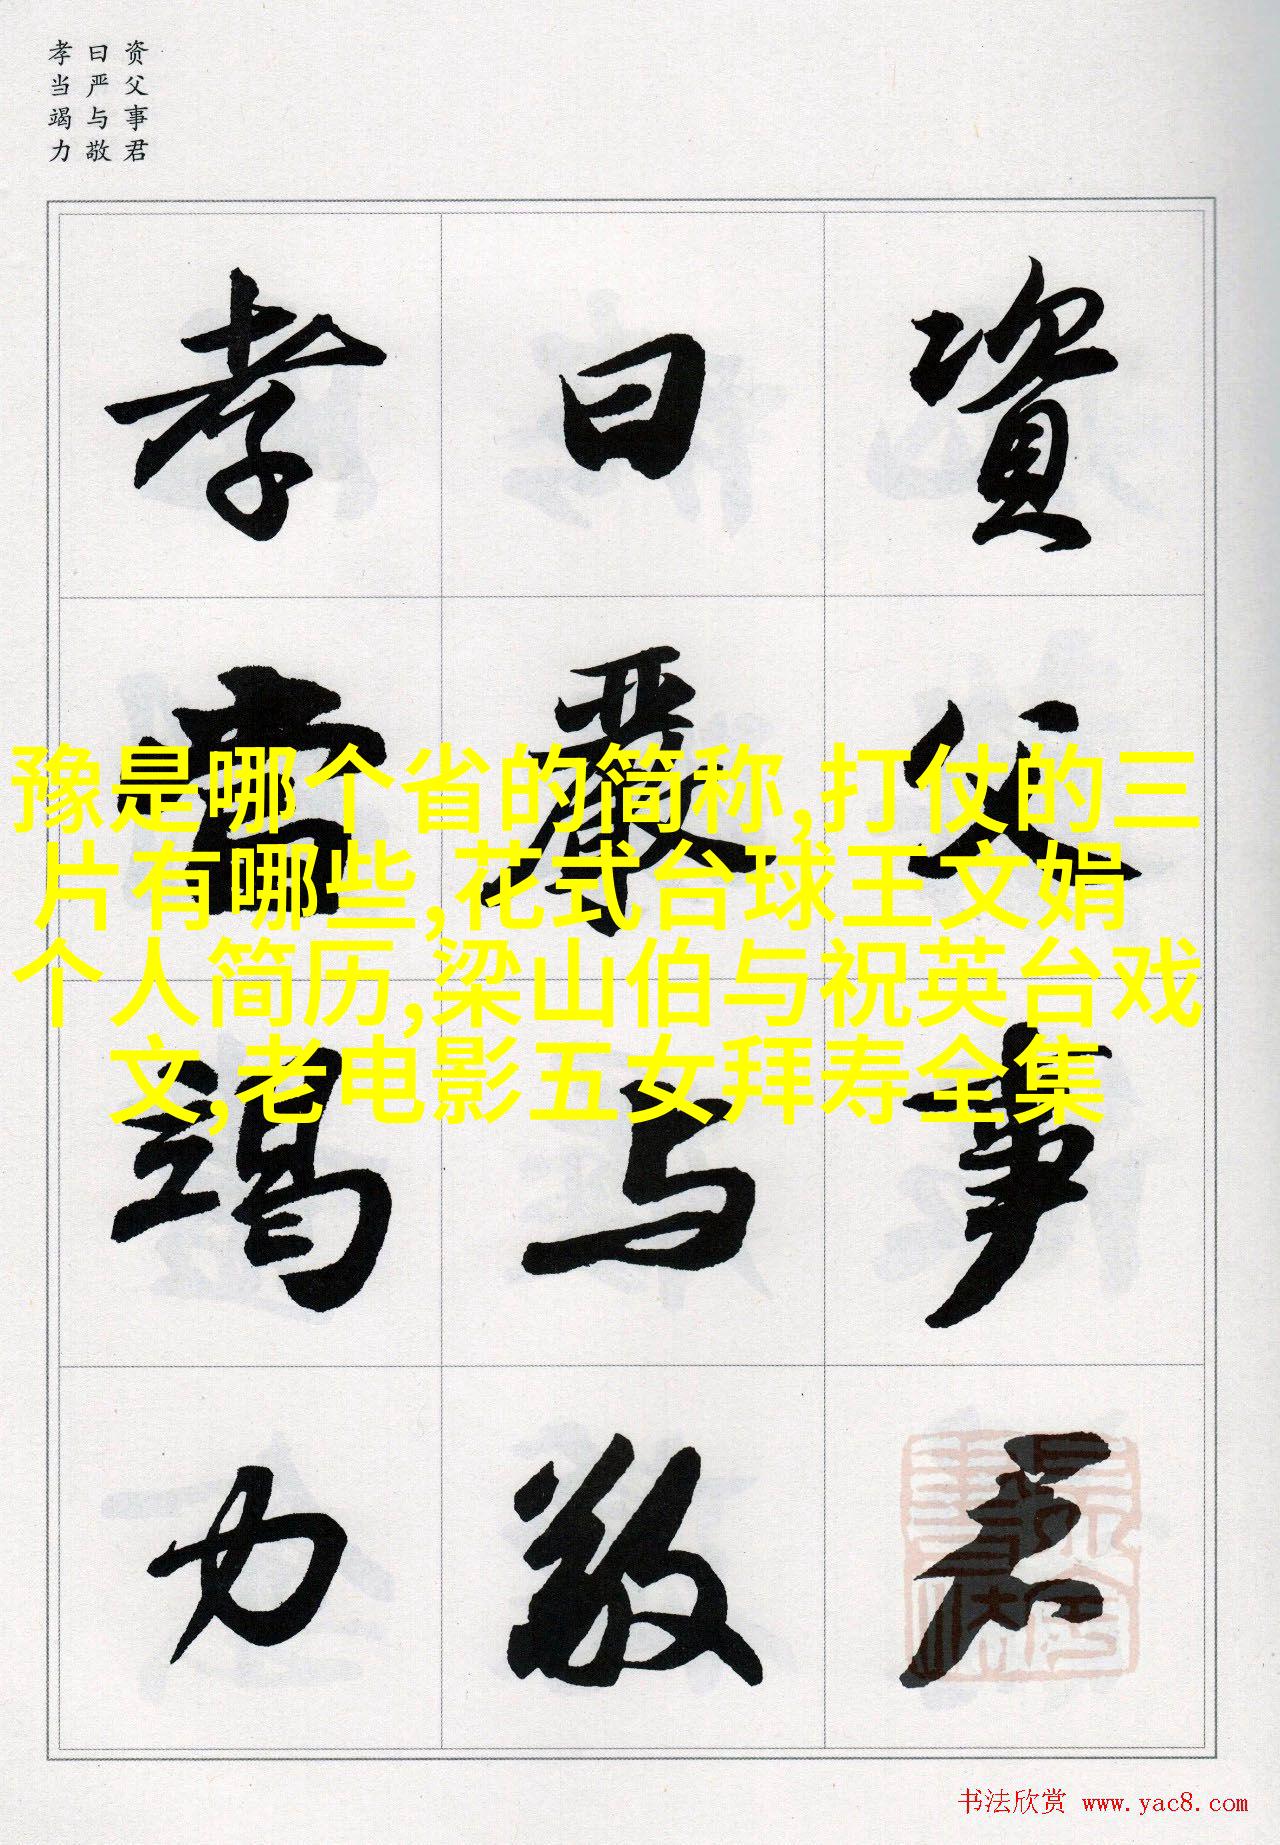 资父事君
曰严与敬
孝当竭力
資父事君
曰嚴与敬
孝當竭力
豫是哪个省的简称,打仗的三
片有哪些,花式台球王文娟
个人简历,梁山伯与祝英台戏
文,老电影五女拜寿全集
书法欣赏 www.yac8.com